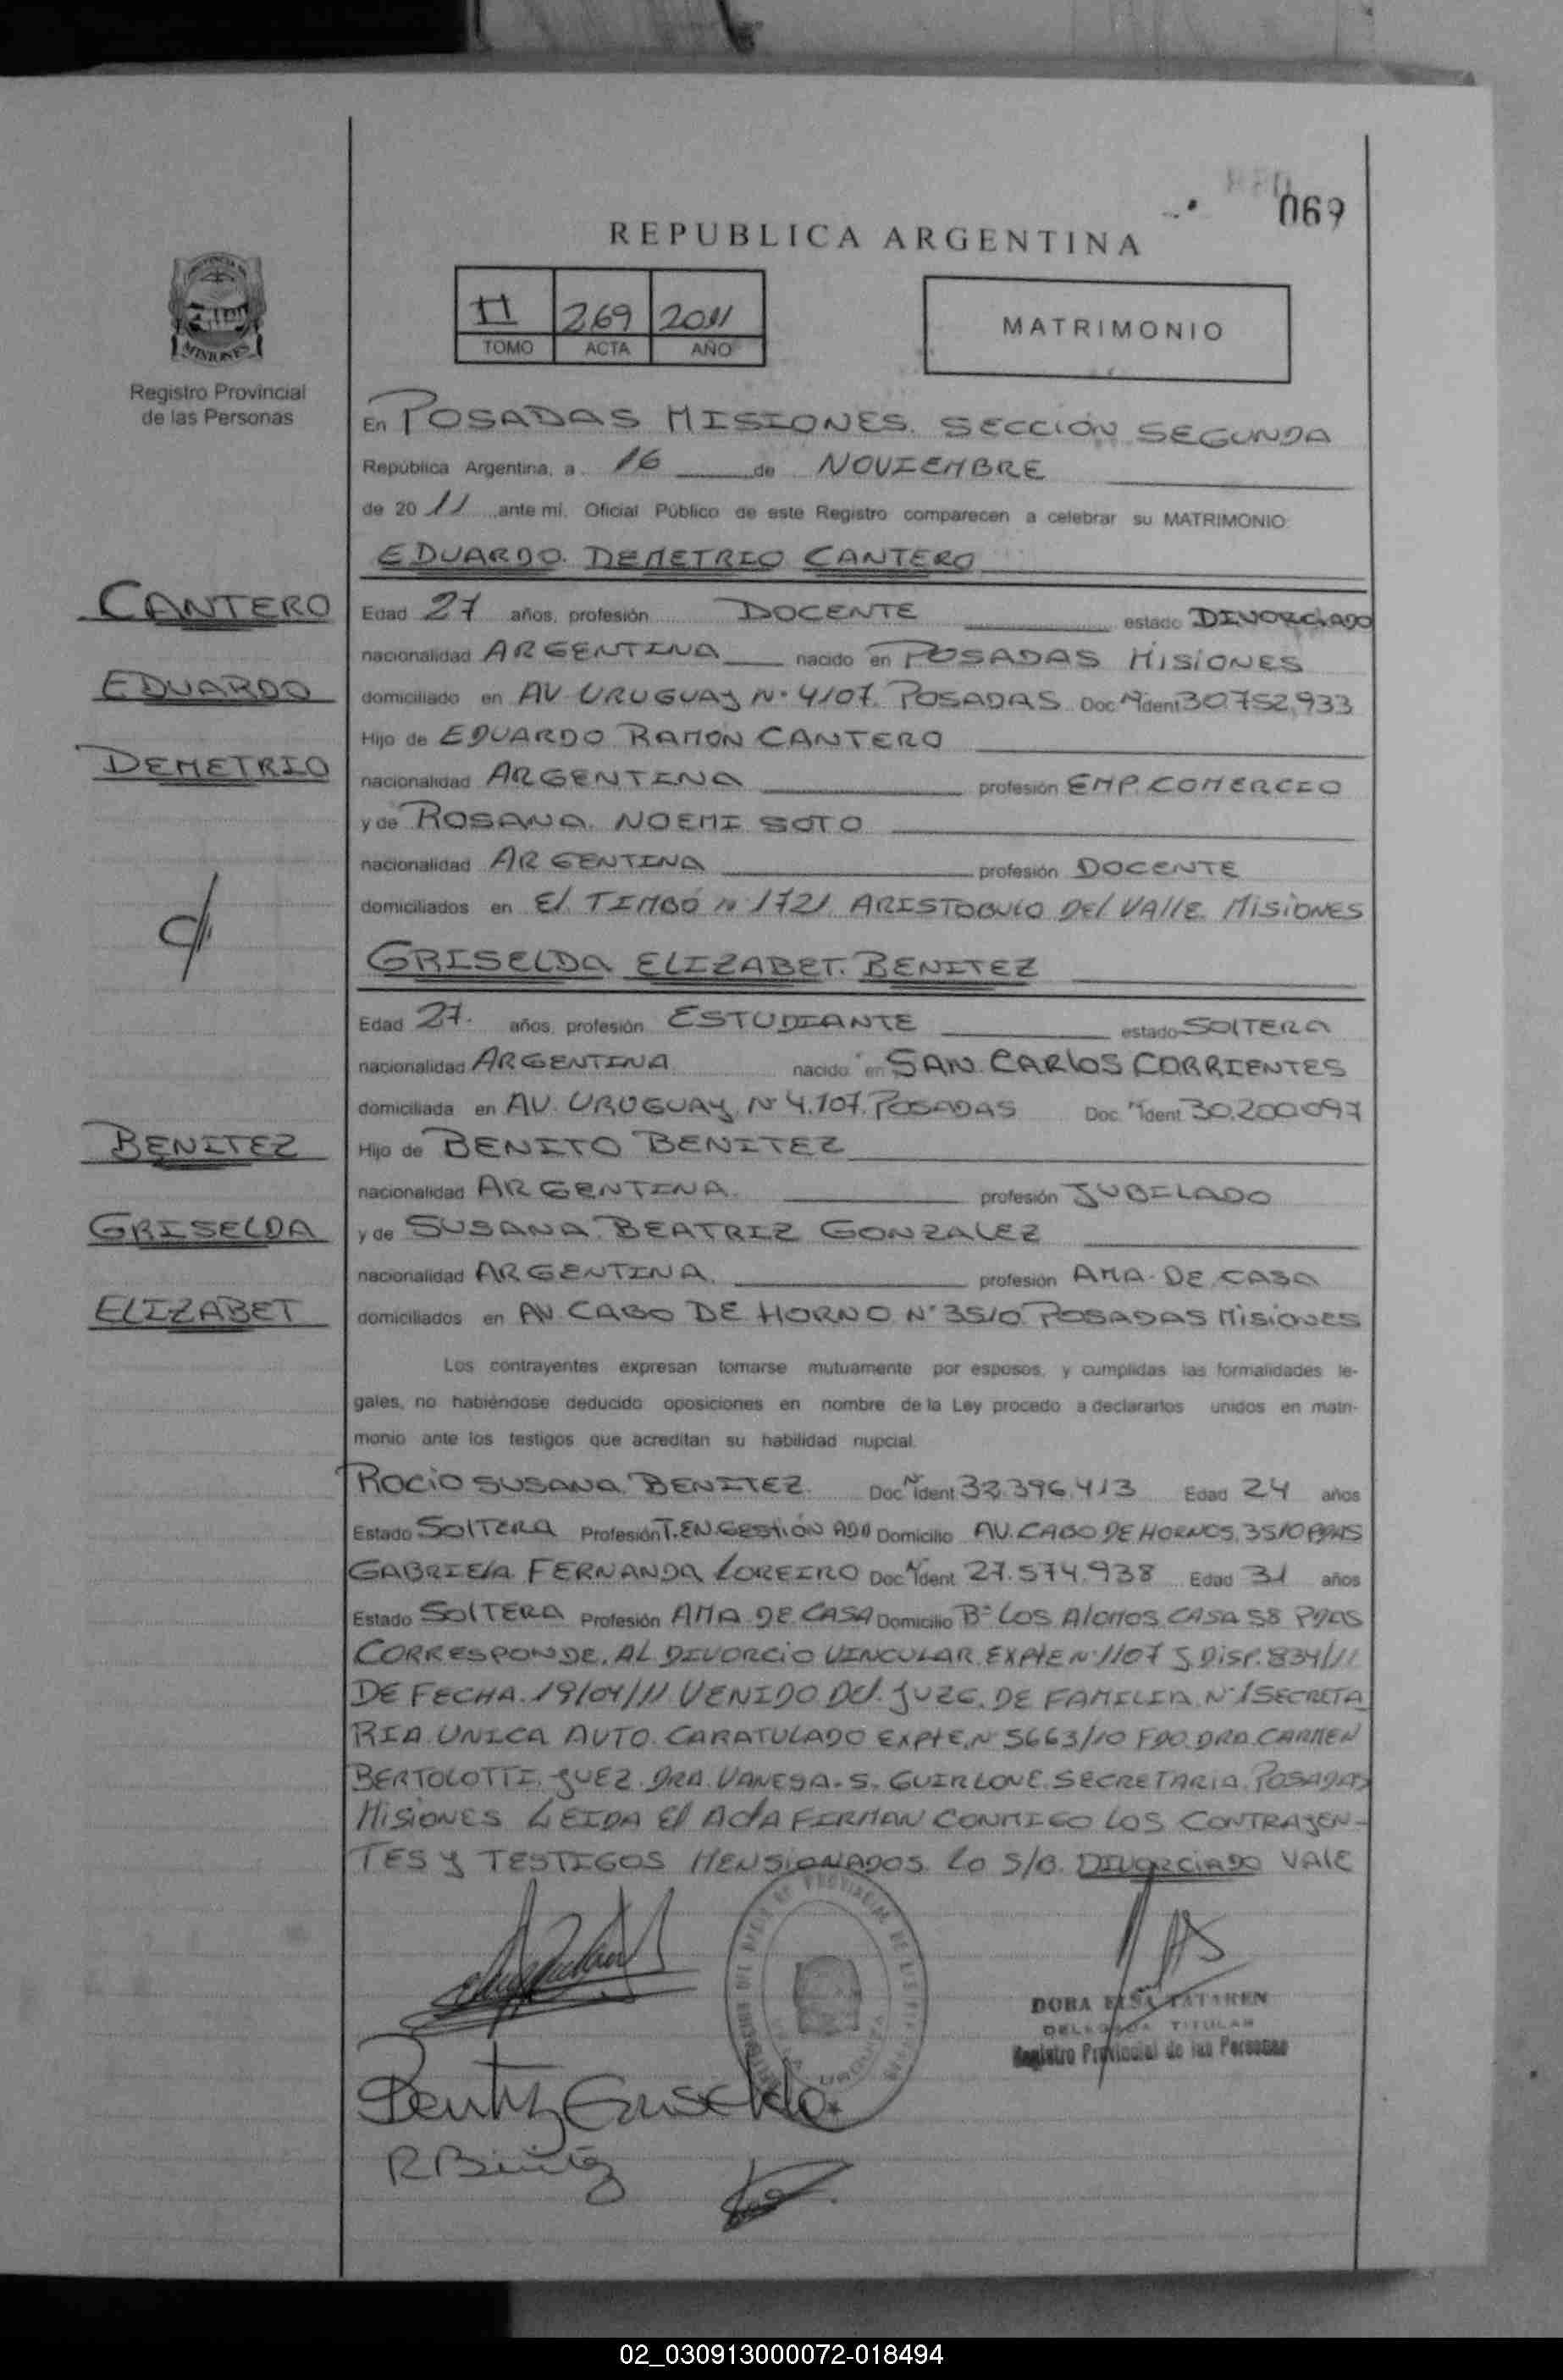 069
REPUBLICA ARGENTINA
II 269 2011
TOMO ACTA AÑO
MATRIMONIO
MISIONES
Registro Provincial
de las Personas
En POSADAS MISIONES. SECCIÓN SEGUNDA
República Argentina, a 16 de NOVIEMBRE
de 20 11 ante mí, Oficial Público de este Registro comparecen a celebrar su MATRIMONIO
EDUARDO DEMETRIO CANTERO
CANTERO
EDUARDO
DEMETRIO
Edad 27 años, profesión DOCENTE estado DIVORCIADO
nacionalidad ARGENTINA nacido en POSADAS MISIONES
domiciliado en AV URUGUAY N° 4107. POSADAS Doc. N° ident 30.752.933
Hijo de EDUARDO RAMON CANTERO
nacionalidad ARGENTINA profesión EMP. COMERCIO
y de ROSANA NOEMI SOTO
nacionalidad ARGENTINA profesión DOCENTE
domiciliados en El TIMBÓ N° 1721 ARISTOBULO DEl VAllE MISIONES
GRISELDA ELIZABET BENITEZ
Edad 27. años, profesión ESTUDIANTE estado SOlTERA
nacionalidad ARGENTINA nacido en SAN CARlOS CORRIENTES
domiciliada en AV. URUGUAY N° 4.107. POSADAS Doc. N° ident 30.200.097
BENITEZ
GRISELDA
ELIZABET
Hijo de BENITO BENITEZ
nacionalidad ARGENTINA profesión JUBILADO
y de SUSANA BEATRIZ GONZALEZ
nacionalidad ARGENTINA. profesión AMA DE CASA
domiciliados en AV. CABO DE HORNO N° 3510 POSADAS MISIONES
Los contrayentes expresan tomarse mutuamente por esposos, y cumplidas las formalidades le-
gales, no habiéndose deducido oposiciones en nombre de la Ley procedo a declararlos unidos en matri-
monio ante los testigos que acreditan su habilidad nupcial.
ROCIO SUSANA BENITEZ Doc. N° ident 32.396.413 Edad 24 años
Estado SOlTERA Profesión T.EN.GESTIÓN ADM Domicilio AV. CABO DE HORNOS. 3510 PDAS
GABRIElA FERNANDA LOREIRO Doc. N° ident 27.574.938 Edad 31 años
Estado SOlTERA Profesión AMA DE CASA Domicilio B° LOS AlAMOS CASA 58 PDAS
CORRESPONDE. AL DIVORCIO VINCULAR EXPTE N° 1107 J DISP. 834/11
DE FECHA. 19/04/11 VENIDO DEl JUZG. DE FAMILIA N° 1 SECRETA
RIA UNICA AUTO CARATULADO EXPTE. N° 5663/10 FDO. DRA CARMEN
BERTOLOTTI JUEZ DRA VANESA. S. GUIRLONE SECRETARIA POSADAS
MISIONES LEIDA El ACTA FIRMAN CONMIGO LOS CONTRAYEN-
TES Y TESTIGOS MENSIONADOS LO S/B. DIVORCIADO VALE
DORA ELSA TATAREN
DELEGADA TITULAR
Registro Provincial de las Personas
Benitez Griselda
R Benitez
02_030913000072-018494